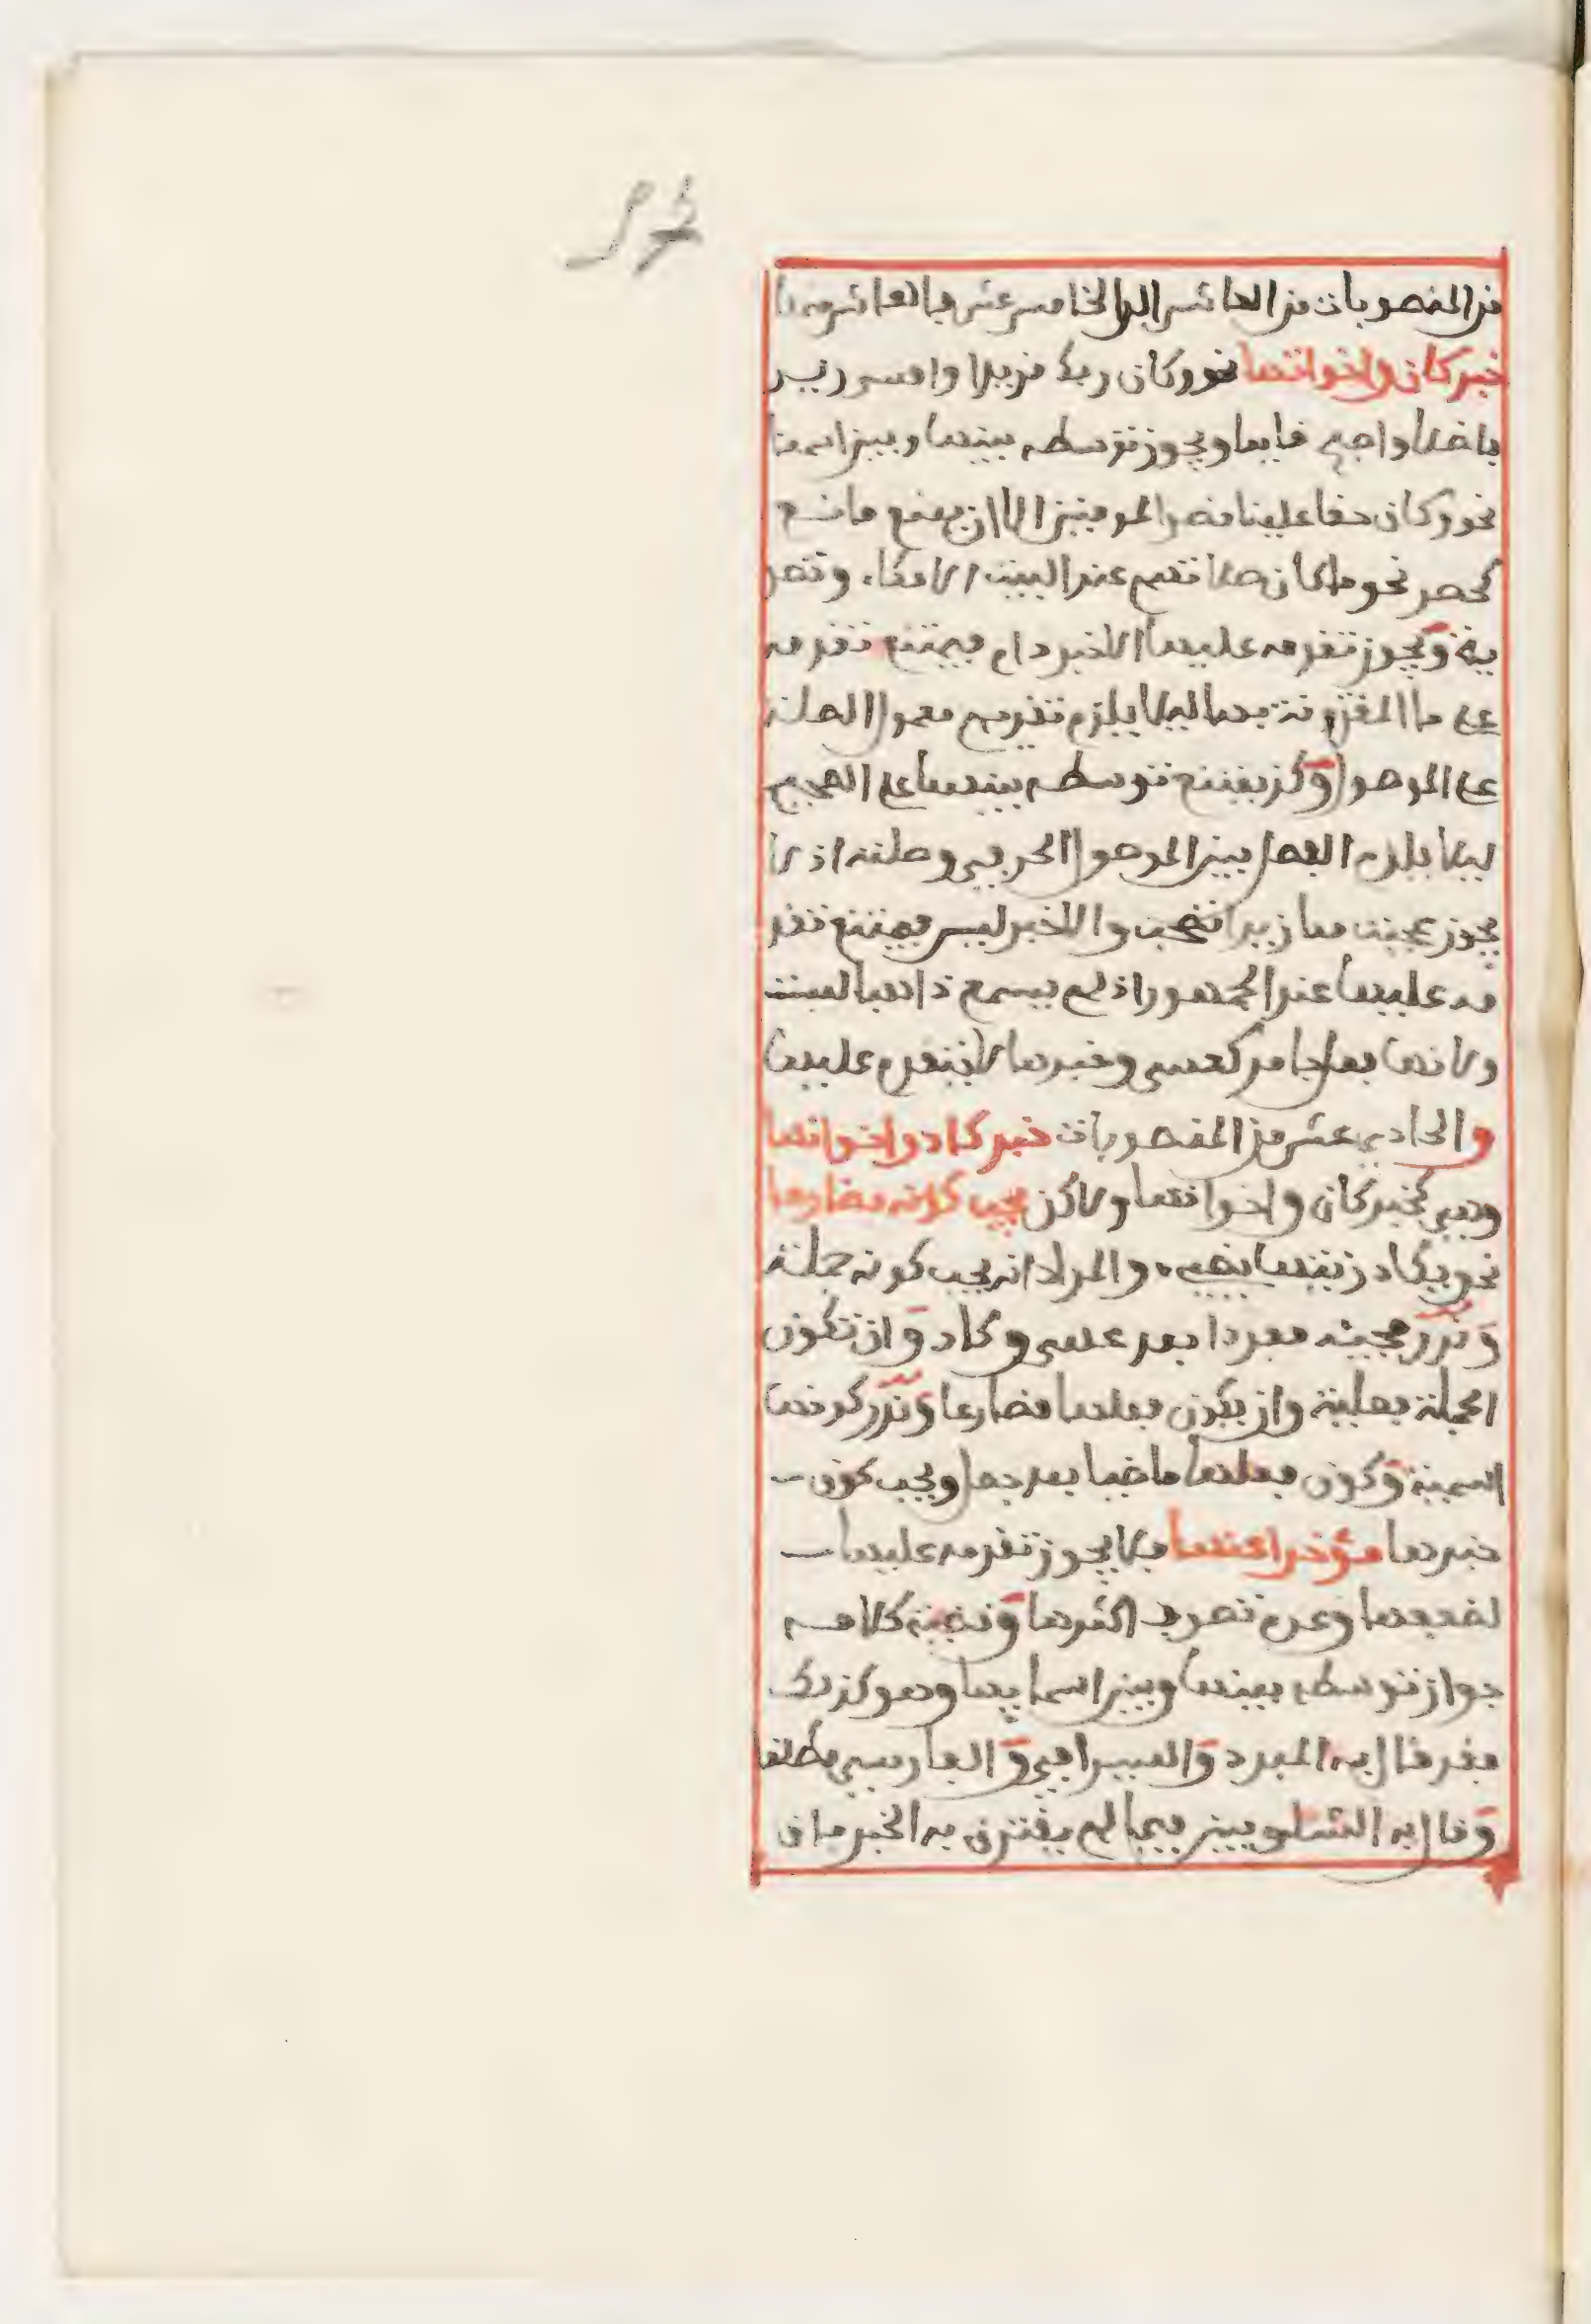 من المنصوبات من العاشر الى الخامس عشر فالعاشر منها
خبر كان واخواتها نحو وكان ربك قديرا وامسى زيد
فاضلا واصبح قايما ويجوز توسطه بينها وبين اسمها
نحو وكان حقا علينا نصر المومنين الا ان يمنع مانع
كحصر نحو ما كان صلاتهم عند البيت الا مكاء وتصد
ية ويجوز تقدمه عليها الا خبر دام فيمتنع تقدمه
على ما المقترنة بها ليلا يلزم تقديم معمول الصلة
على الموصول وكذ يمتنع توسطه بينهما على الصحيح
ليلا يلزم الفصل بين الموصول الحرفي وصلته اذ لا
يجوز عجبت مما زيدا تصحب والا خبر ليس فيمتنع تقد
مه عليها عند الجمهور اذ لم يسمع ذاهبا لست
ولانها فعل جامد كعسى وخبرها لا يتقدم عليها
والحادي عشر من المنصوبات خبر كاد واخواتها
وهي كخبر كان واخواتها ولاكن يجب كونه مضارعا
نحو يكاد زيتها يضيء والمراد انه يجب كونه جملة
وندر مجيئه مفردا بعد عسى وكاد وان تكون
الجملة فعلية وان يكون فعلها مضارعا وندر كونها
اسمية وكون فعلها ماضيا بعد جعل ويجب كون
خبرها مؤخرا عنها فلا يجوز تقدمه عليها
لضعفها وعدم تصرف اكثرها وقضية كلامه
جواز توسطه بينها وبين اسمايها وهو كذلك
فقد قال به المبرد والسيرافي والفارسي مطلقا
وقال به الشلوبين فيما لم يقترن به الخبر بان